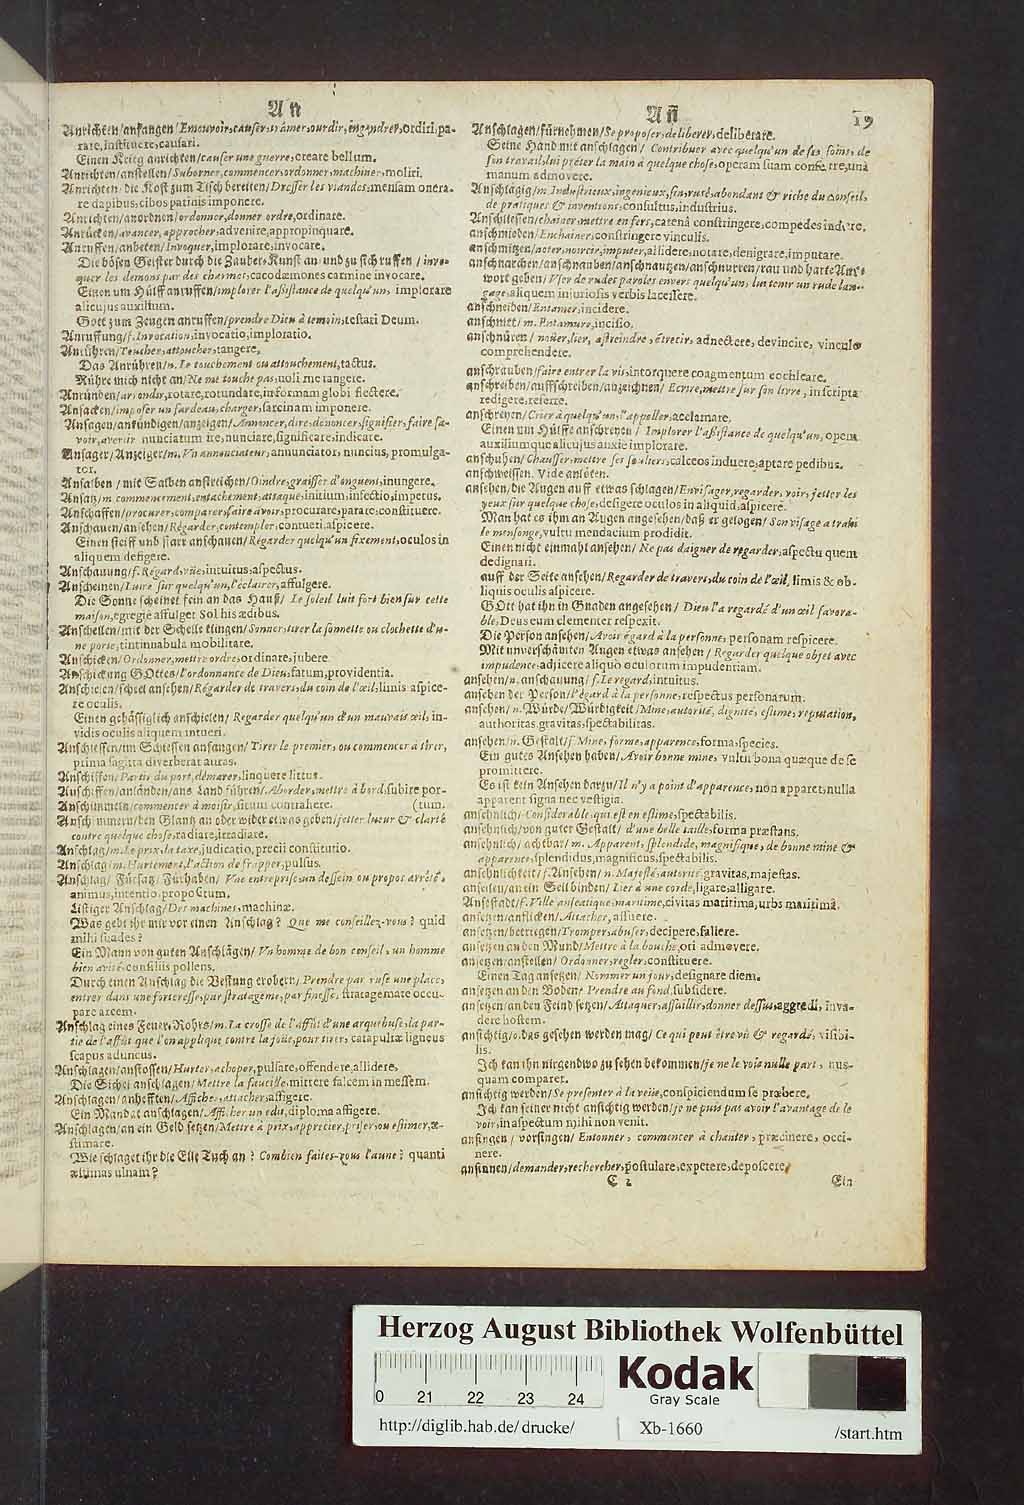 An
Anrichten/anfangen/Emouvoir,causer,tramer,ourdir,engendrer,ordiri,pa-
rare,instituere,causari.
Einen Krieg anrichten/causer une guerre,creare bellum.
Anrichten/anstellen/Suborner,commencer,ordonner,machiner,moliri.
Anrichten die Kost zum Tisch bereiten/Dresser les viandes,mensam onera-
re dapibus,cibos patinis imponere.
Anrichten/anordnen/ordonner,donner ordre,ordinare.
Anrücken/avancer,approcher,advenire,appropinquare.
Anruffen/anbeten/Invoquer,implorare,invocare.
Die bösen Geister durch die Zauber-Kunst an- und zu sich ruffen/invo-
quer les demons par des charmes,cacodæmones carmine invocare.
Einen um Hülff anruffen/implorer l'assistance de quelqu'un, implorare
alicujus auxilium.
Gott zum Zeugen anruffen/prendre Dieu à temoin,testari Deum.
Anruffung/f.Invocation,invocatio,imploratio.
Anrühren/Toucher,attoucher,tangere,
Das Anrühren/n. Le touchement ou attouchement,tactus.
Rühre mich nicht an/Ne me touche pas,noli me tangere.
Anründen/arrondir,rotare,rotundare,in formam globi flectere.
Ansacken/imposer un fardeau,charger,sarcinam imponere.
Ansagen/ankündigen/anzeigen/Annoncer,dire,denoncer,signifier,faire sa-
voir,avertir nunciatum ire,nunciare,significare,indicare.
Ansager/Anzeiger/m. Un annonciateur,annunciator,nuncius,promulga-
tor.
Ansalben/mit Salben anstreichen/Oindre,graisser d'onguent,inungere.
Ansatz/m. commencement,attachement,attaque,initium,infectio,impetus.
Anschaffen/procurer,comparer,faire avoir,procurare,parare,constituere.
Anschauen/ansehen/Régarder,contempler,contueri,aspicere.
Einen steiff und starr anschauen/Régarder quelqu'un fixement,oculos in
aliquem defigere.
Anschauung/f.Régard,vüe,intuitus,aspectus.
Anscheinen/Luire sur quelqu'un,l'éclairer,affulgere.
Die Sonne scheinet fein an das Hauß/Le soleil luit fort bien sur cette
maison,egregiè affulget Sol his ædibus.
Anschellen/mit der Schelle klingen/Sonner,tirer la sonnette ou clochette d'u-
ne porte,tintinnabula mobilitare.
Anschicken/Ordonner,mettre ordre,ordinare,jubere.
Anschickung GOttes/l'ordonnance de Dieu,fatum,providentia.
Anschielen/scheel ansehen/Régarder de travers,du coin de l'œil,limis aspice-
re oculis.
Einen gehässiglich anschielen/Regarder quelqu'un d'un mauvais œil, in-
vidis oculis aliquem intueri.
Anschiessen/im Schiessen anfangen/Tirer le premier, ou commencer à tirer,
prima sagitta diverberat auras.
Anschiffen/Partir du port,démarer,linquere littus.
Anschiffen/anländen/ans Land führen/Aborder,mettre à bord,subire por-
Anschimmeln/commencer à moisir,situm contrahere. (tum.
Anschimmern/den Glantz an oder wider etwas geben/jetter lueur & clarté
contre quelque chose,radiare,irradiare.
Anschlag/m.Le prix,la taxe,judicatio,precii constitutio.
Anschlag/m.Hurtement,l'action de frapper,pulsus.
Anschlag/Fürsatz/Fürhaben/Une entreprise,un dessein ou propos arrêté,
animus,intentio,propositum.
Listiger Anschlag/Des machines,machinæ.
Was gebt ihr mir vor einen Anschlag? Que me conseillez-vous? quid
mihi suades?
Ein Mann von guten Anschlägen/Un homme de bon conseil, un homme
bien avisé,consiliis pollens.
Durch einen Anschlag die Vestung erobern/Prendre par ruse une place,
entrer dans une forteresse,par stratageme,par finesse,stratagemate occu-
pare arcem.
Anschlag eines Feuer-Rohrs/m.La crosse de l'affût d'une arquebuse,la par-
tie de l'affût que l'on applique contre la joüe,pour tirer, catapultæ ligneus
scapus aduncus.
Anschlagen/anstossen/Hurter,achoper,pulsare,offendere,allidere.
Die Sichel anschlagen/Mettre la faucille,mittere falcem in messem.
Anschlagen/anhefften/Afficher,attacher,affigere.
Ein Mandat anschlagen/Afficher un edit,diploma affigere.
Anschlagen/an ein Geld setzen/Mettre à prix,apprecier,priser,ou estimer,æ-
stimare.
Wie schlaget ihr die Elle Tuch an? Combien faites-vous l'aune? quanti
æstimas ulnam?
An 19
Anschlagen/fürnehmen/Se proposer,deliberer,deliberare.
Seine Hand mit anschlagen/Contribuer avec quelqu'un de ses soins, de
son travail,lui préter la main à quelque chose,operam suam conferre,unà
manum admovere.
Anschlägig/m.Industrieux,ingenieux,fin,rusé,abondant & riche du conseil,
de pratiques & inventions,consultus,industrius.
Anschliessen/chainer,mettre en fers,catenâ constringere,compedes indere.
anschmieden/Enchainer,constringere vinculis.
anschmitzen/noter,noircir,imputer,allidere,notare,denigrare,imputare.
anschnarchen/anschnauben/anschnautzen/anschnurren/rau und harte Ant-
wort geben/User de rudes paroles envers quelqu'un, lui tenir un rude lan-
gage,aliquem injuriosis verbis lacessere.
anschneiden/Entamer,incidere.
anschnitt/m.Entamure,incisio.
anschnüren/noüer,lier,astreindre,étrecir,adnectere,devincire, vinculo
comprehendere.
anschrauben/faire entrer la vis,intorquere coagmentum cochleare.
anschreiben/auffschreiben/anzeichnen/Ecrire,mettre sur son livre,in scripta
redigere,referre.
anschreyen/Crier à quelqu'un,l'appeller,acclamare.
Einen um Hülffe anschreyen/Implorer l'assistance de quelqu'un,opem
auxiliumque alicujus anxie implorare.
anschuhen/Chausser,mettre ses souliers,calceos induere,aptare pedibus.
anschweissen. Vide anlöten.
ansehen/die Augen auff etwas schlagen/Envisager,regarder,voir,jetter les
yeux sur quelque chose,defigere oculos in aliquid,aspicere.
Man hat es ihm an Augen angesehen/daß er gelogen/Son visage a trahi
le mensonge,vultu mendacium prodidit.
Einen nicht einmahl ansehen/Ne pas daigner de regarder,aspectu quem
dedignari.
auff der Seite ansehen/Regarder de travers,du coin de l'œil,limis & ob-
liquis oculis aspicere.
GOtt hat ihn in Gnaden angesehen/Dieu l'a regardé d'un œil favora-
ble,Deus eum clementer respexit.
Die Person ansehen/Avoir égard à la personne,personam respicere.
Mit unverschämten Augen etwas ansehen/Regarder quelque objet avec
impudence,adjicere aliquo oculorum impudentiam.
ansehen/n.anschauung/f.Le regard,intuitus.
ansehen der Person/l'égard à la personne,respectus personarum.
ansehen/n.Würde/Würdigkeit/Mine,autorité,dignité,estime,reputation,
authoritas,gravitas,spectabilitas.
ansehen/n.Gestalt/f.Mine,forme,apparence,forma,species.
Ein gutes Ansehen haben/Avoir bonne mine,vultu bona quæque de se
promittere.
Es ist kein Ansehen darzu/Il n'y a point d'apparence,non apparet,nulla
apparent signa nec vestigia.
ansehnlich/Considerable,qui est en estime,spectabilis.
ansehnlich/von guter Gestalt/d'une belle taille,forma præstans.
ansehnlich/achtbar/m.Apparent,splendide,magnifique,de bonne mine &
apparence,splendidus,magnificus,spectabilis.
ansehnlichkeit/f.Ansehen/n.Majesté,autorité,gravitas,majestas.
anseilen/an ein Seil binden/Lier à une corde,ligare,alligare.
Anseestadt/f.Ville anseatique,maritime,civitas maritima,urbs maritima.
ansetzen/anflicken/Attacher,assuere.
ansetzen/betriegen/Tromper,abuser,decipere,fallere.
ansetzen an den Mund/Mettre à la bouche,ori admovere.
ansetzen/anstellen/Ordonner,regler,constituere.
Einen Tag ansetzen/Nommer un jour,designare diem.
ansetzen an den Boden/Prendre au fond,subsidere.
ansetzen/an den Feind setzen/Attaquer,assaillir,donner dessus,aggredi, inva-
dere hostem.
ansichtig/o.das gesehen werden mag/Ce qui peut être vû & regardé,visibi-
lis.
Ich kan ihn nirgendwo zu sehen bekommen/je ne le vois nulle part, nus-
quam comparet.
ansichtig werden/Se presenter à la veüe,conspiciendum se præbere.
Ich kan seiner nicht ansichtig werden/je ne puis pas avoir l'avantage de le
voir,in aspectum mihi non venit.
ansingen/vorsingen/Entonner, commencer à chanter, præcinere, occi-
nere.
ansinnen/demander,rechercher,postulare,expetere,deposcere.
C 2 Ein
Herzog August Bibliothek Wolfenbüttel
0 21 22 23 24
Kodak
Gray Scale
http://diglib.hab.de/drucke/ Xb-1660 /start.htm